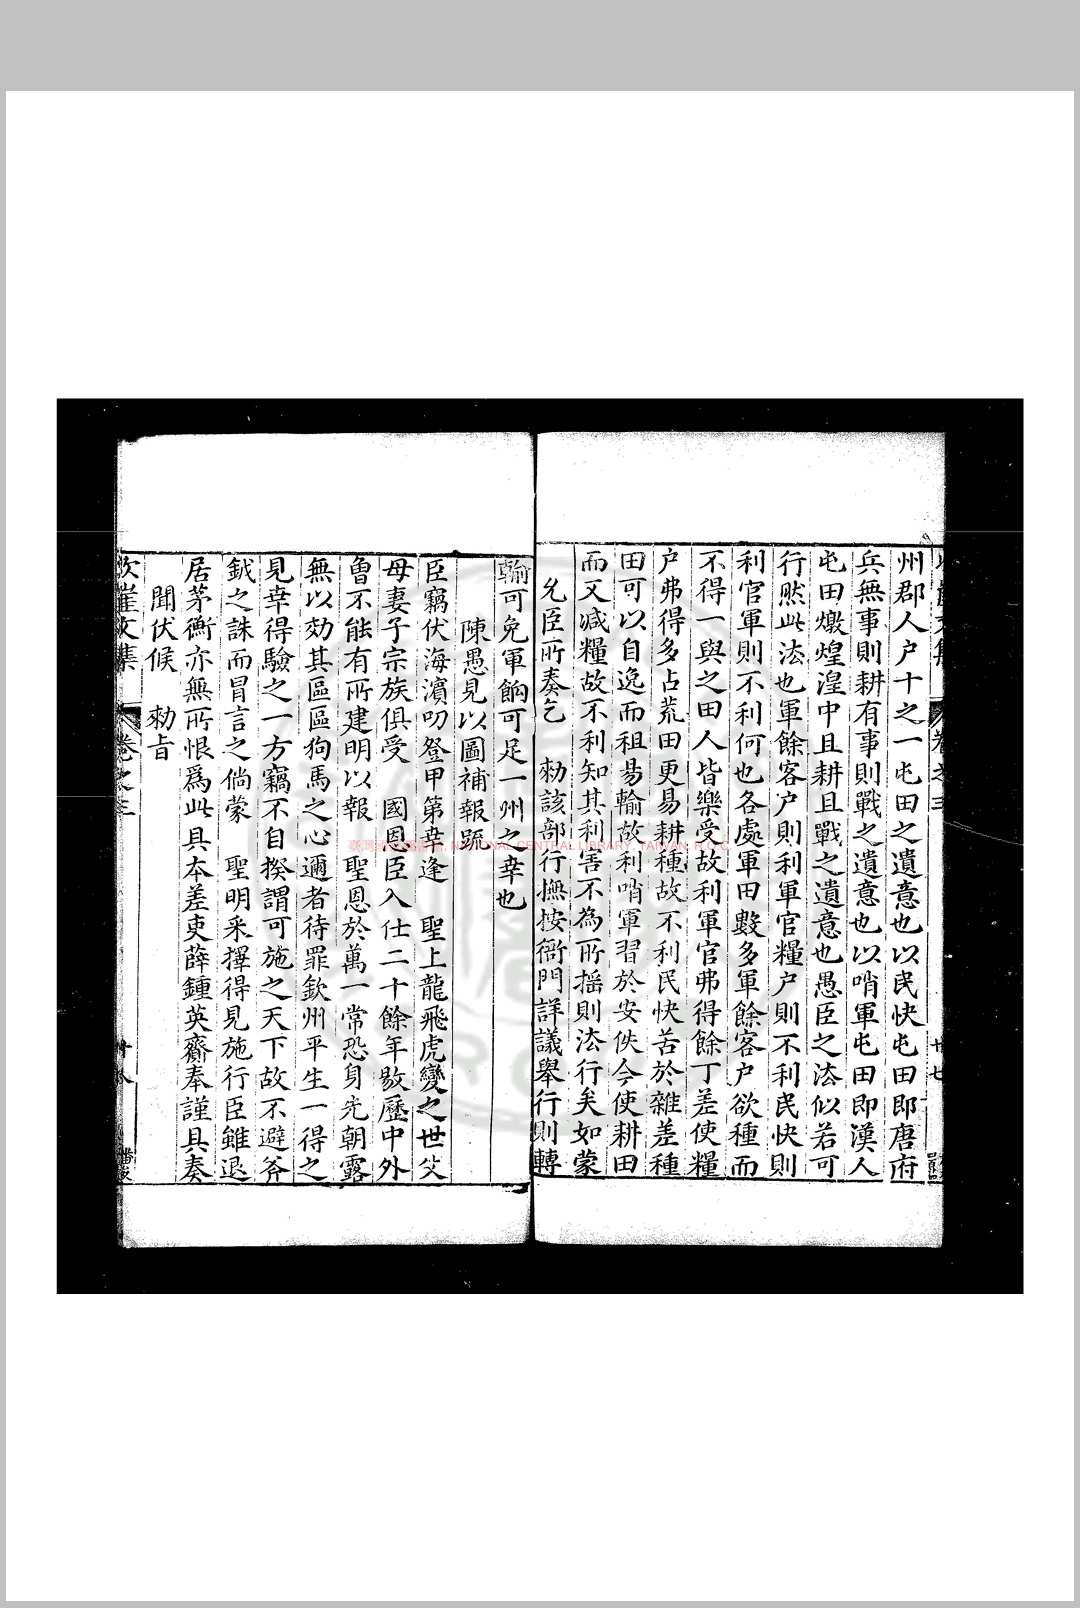 州郡人户十之一屯田之遺意也以民快屯田即唐府
兵無事則耕有事則戰之遺意也以哨軍屯田即漢人
屯田燉煌湟中且耕且戰之遺意也愚臣之法似若可
行然此法也軍餘客户則利軍官糧户則不利民快則
利官軍則不利何也各處軍田數多軍餘客户欲種而
不得一與之田人皆樂受故利軍官弗得餘丁差使糧
户弗得多占荒田更易耕種故不利民快苦於雜差種
田可以自逸而租易輸故利哨軍習於安佚今使耕田
而又减糧故不利知其利害不為所摇則法行矣如蒙
允臣所奏乞 勑該部行撫按衙門詳議舉行則轉
輸可免軍餉可足一州之幸也
陳愚見以圖補報疏
臣竊伏海濵叨登甲第幸逢 聖上龍飛虎變之世父
母妻子宗族俱受 國恩臣入仕二十餘年敭歷中外
曾不能有所建明以報 聖恩於萬一常恐身先朝露
無以効其區區狗馬之心邇者待罪欽州平生一得之
見幸得驗之一方竊不自揆謂可施之天下故不避斧
鉞之誅而冒言之倘蒙 聖明采擇得見施行臣雖退
居茅衡亦無所恨爲此具本差吏薛鍾英齎奉謹具奏
聞伏候 勑旨
次崖文集 卷之三 廿八
NATIONAL CENTRAL LIBRARY, TAIWAN, R.O.C